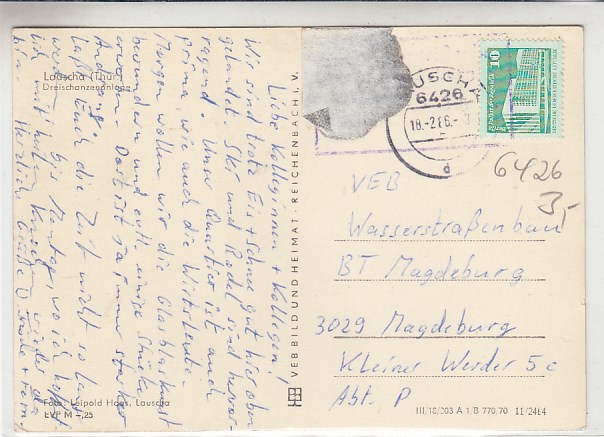 Lauscha (Thür.)
Dreischanzenanlage
Liebe Kolleginnen + Kollegen!
Wir sind trotz Eis + Schnee gut hier oben
gelandet. Ski und Rodel sind hervor-
ragend. Unser Quartier ist auch
prima wie auch die Wirtsleute.
Morgen wollen wir die Glasblaskunst
bewundern und evtl. einige Stücke
Dort ist ja immer starker
Andrang.
Laßt Euch die Zeit nicht so lang
werden. Bis Montag, wo ich
Herzliche Grüße
Foto: Leipold Haas, Lauscha
EVP M -,25
VEB BILD UND HEIMAT · REICHENBACH i. V.
6426
18.-2.86.-
d
10
6426
3,-
VEB
Wasserstraßenbau
BT Magdeburg
3029 Magdeburg
Kleiner Werder 5c
Abt. P
III/18/203 A 1/B 770/70 II/2464